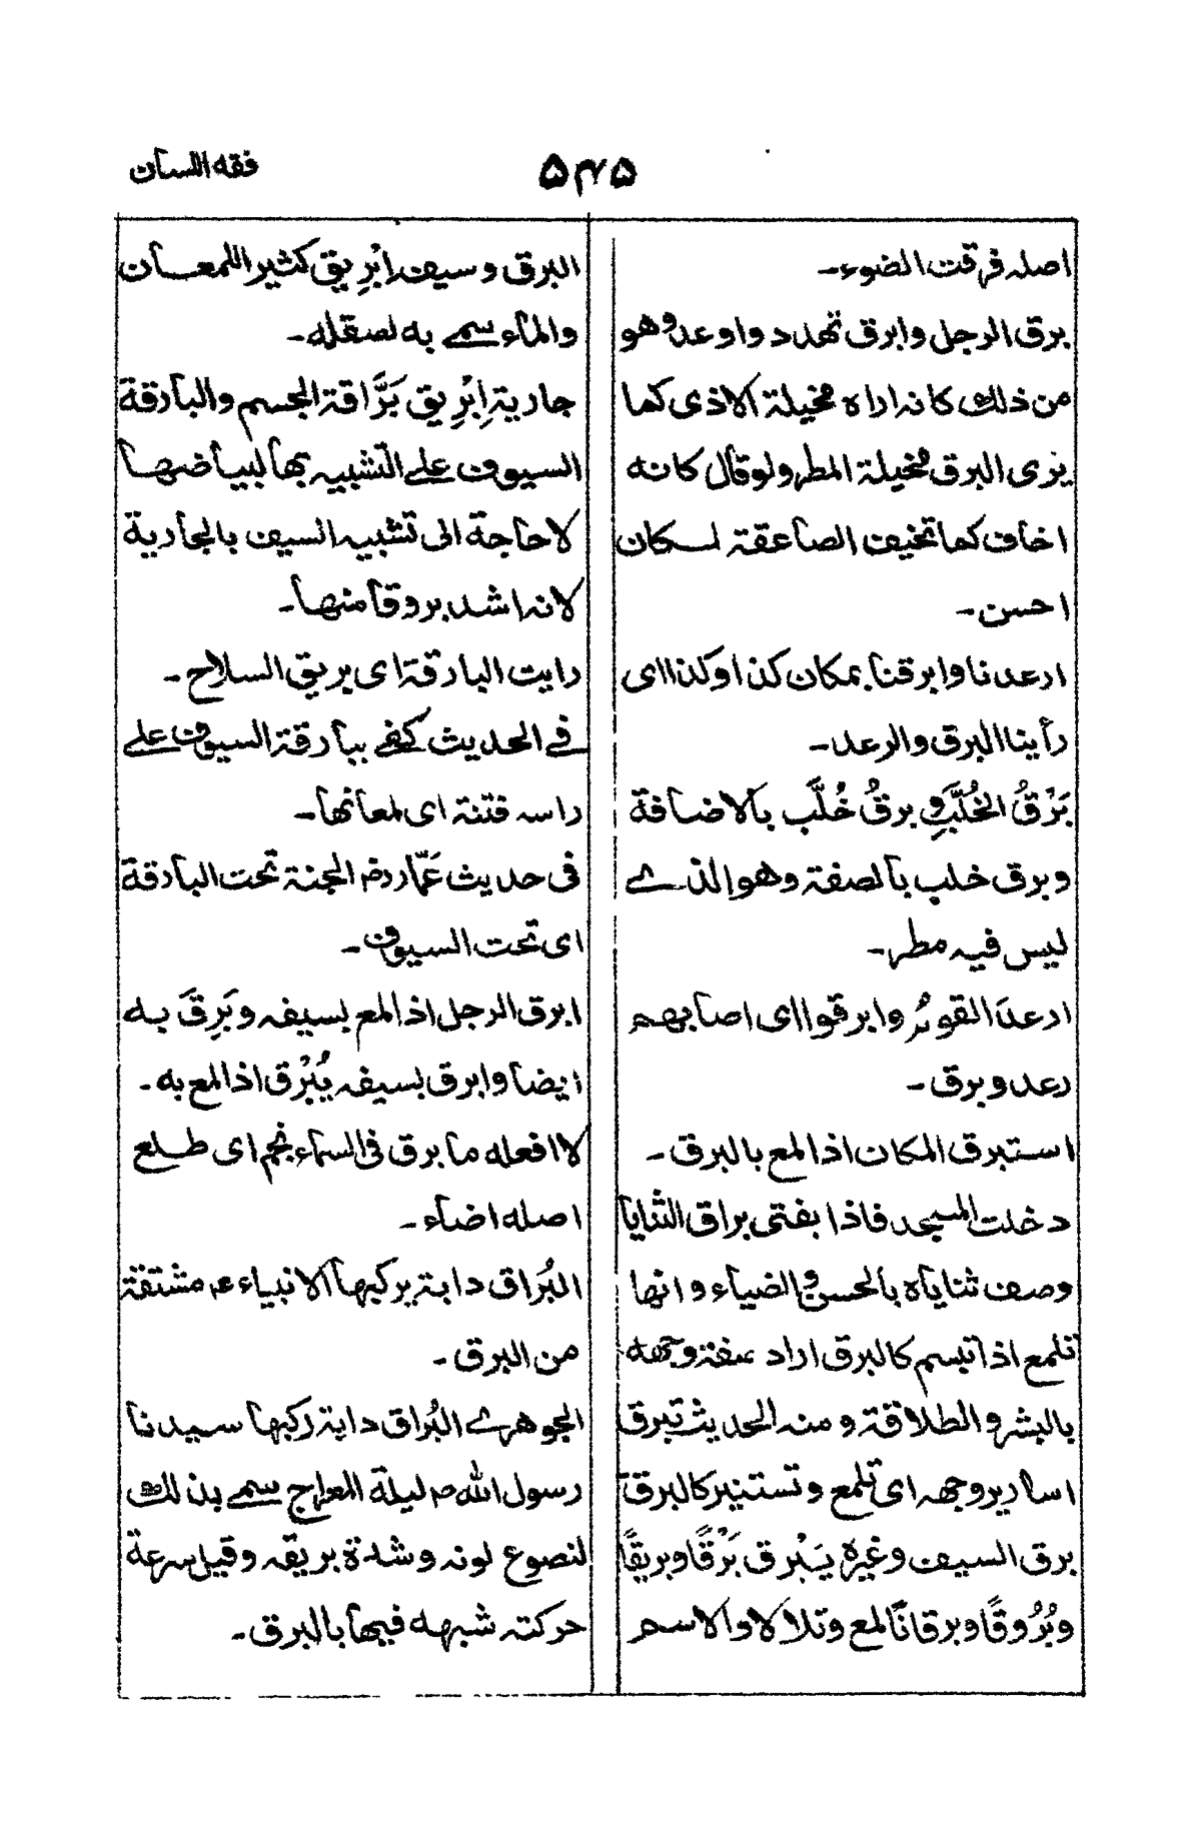 فقه اللسان
۵۴۵
اصله فرقت الضوء۔
برق الرجل وابرق تهدد واوعد وهو
من ذلك كانه اراه مخيلة الاذى كما
يرى البرق مخيلة المطر ولو قال كانه
اخاف كما تخيف الصاعقة لسكان
احسن۔
ارعدنا وابرقنا بمكان كذا وكذا اى
رأينا البرق والرعد۔
بَرْقُ الخُلَّبِ وبرقُ خُلَّب بالاضافة
وبرق خلب بالصفة وهو الذے
ليس فيه مطر۔
ارعدَ القومُ وابرقوا اى اصابهم
رعد وبرق۔
استبرق المكان اذا لمع بالبرق۔
دخلت المسجد فاذا بفتى براق الثنايا
وصف ثناياه بالحسن والضياء وانها
تلمع اذا تبسم كالبرق اراد صفة وجهه
بالبشر والطلاقة ومنه الحديث تبرق
اسارير وجهه اى تلمع وتستنير كالبرق
برق السيف وغيره يَبْرق بَرْقًا وبريقًا
وبُرُوقًا وبرقانًا لمع وتلالا والاسم
البرق وسيف اِبْرِيق كثير اللمعان
والماء سمے به لصقله۔
جارية اِبْرِيق بَرَّاقة الجسم والبارقة
السيوف علے التشبيه بها لبياضها
لا حاجة الى تشبيه السيف بالجارية
لانه اشد بروقا منها۔
رايت البارقة اى بريق السلاح۔
فے الحديث كفے ببارقة السيوف علے
راسه فتنة اى لمعانها۔
فى حديث عَمّار رضـ الجنة تحت البارقة
اى تحت السيوف۔
ابرق الرجل اذا لمع بسيفه وبَرِقَ به
ايضا وابرق بسيفه يُبْرق اذا لمع به۔
لا افعله ما برق فى السماء نجم اى طلع
اصله اضاء۔
البُراق دابة يركبها الانبياء عـ مشتقة
من البرق۔
الجوهرے البُراق دابة ركبها سيدنا
رسول الله صـ ليلة المعراج سمے بذلك
لنصوع لونه وشدة بريقه وقيل سرعة
حركته شبهه فيها بالبرق۔